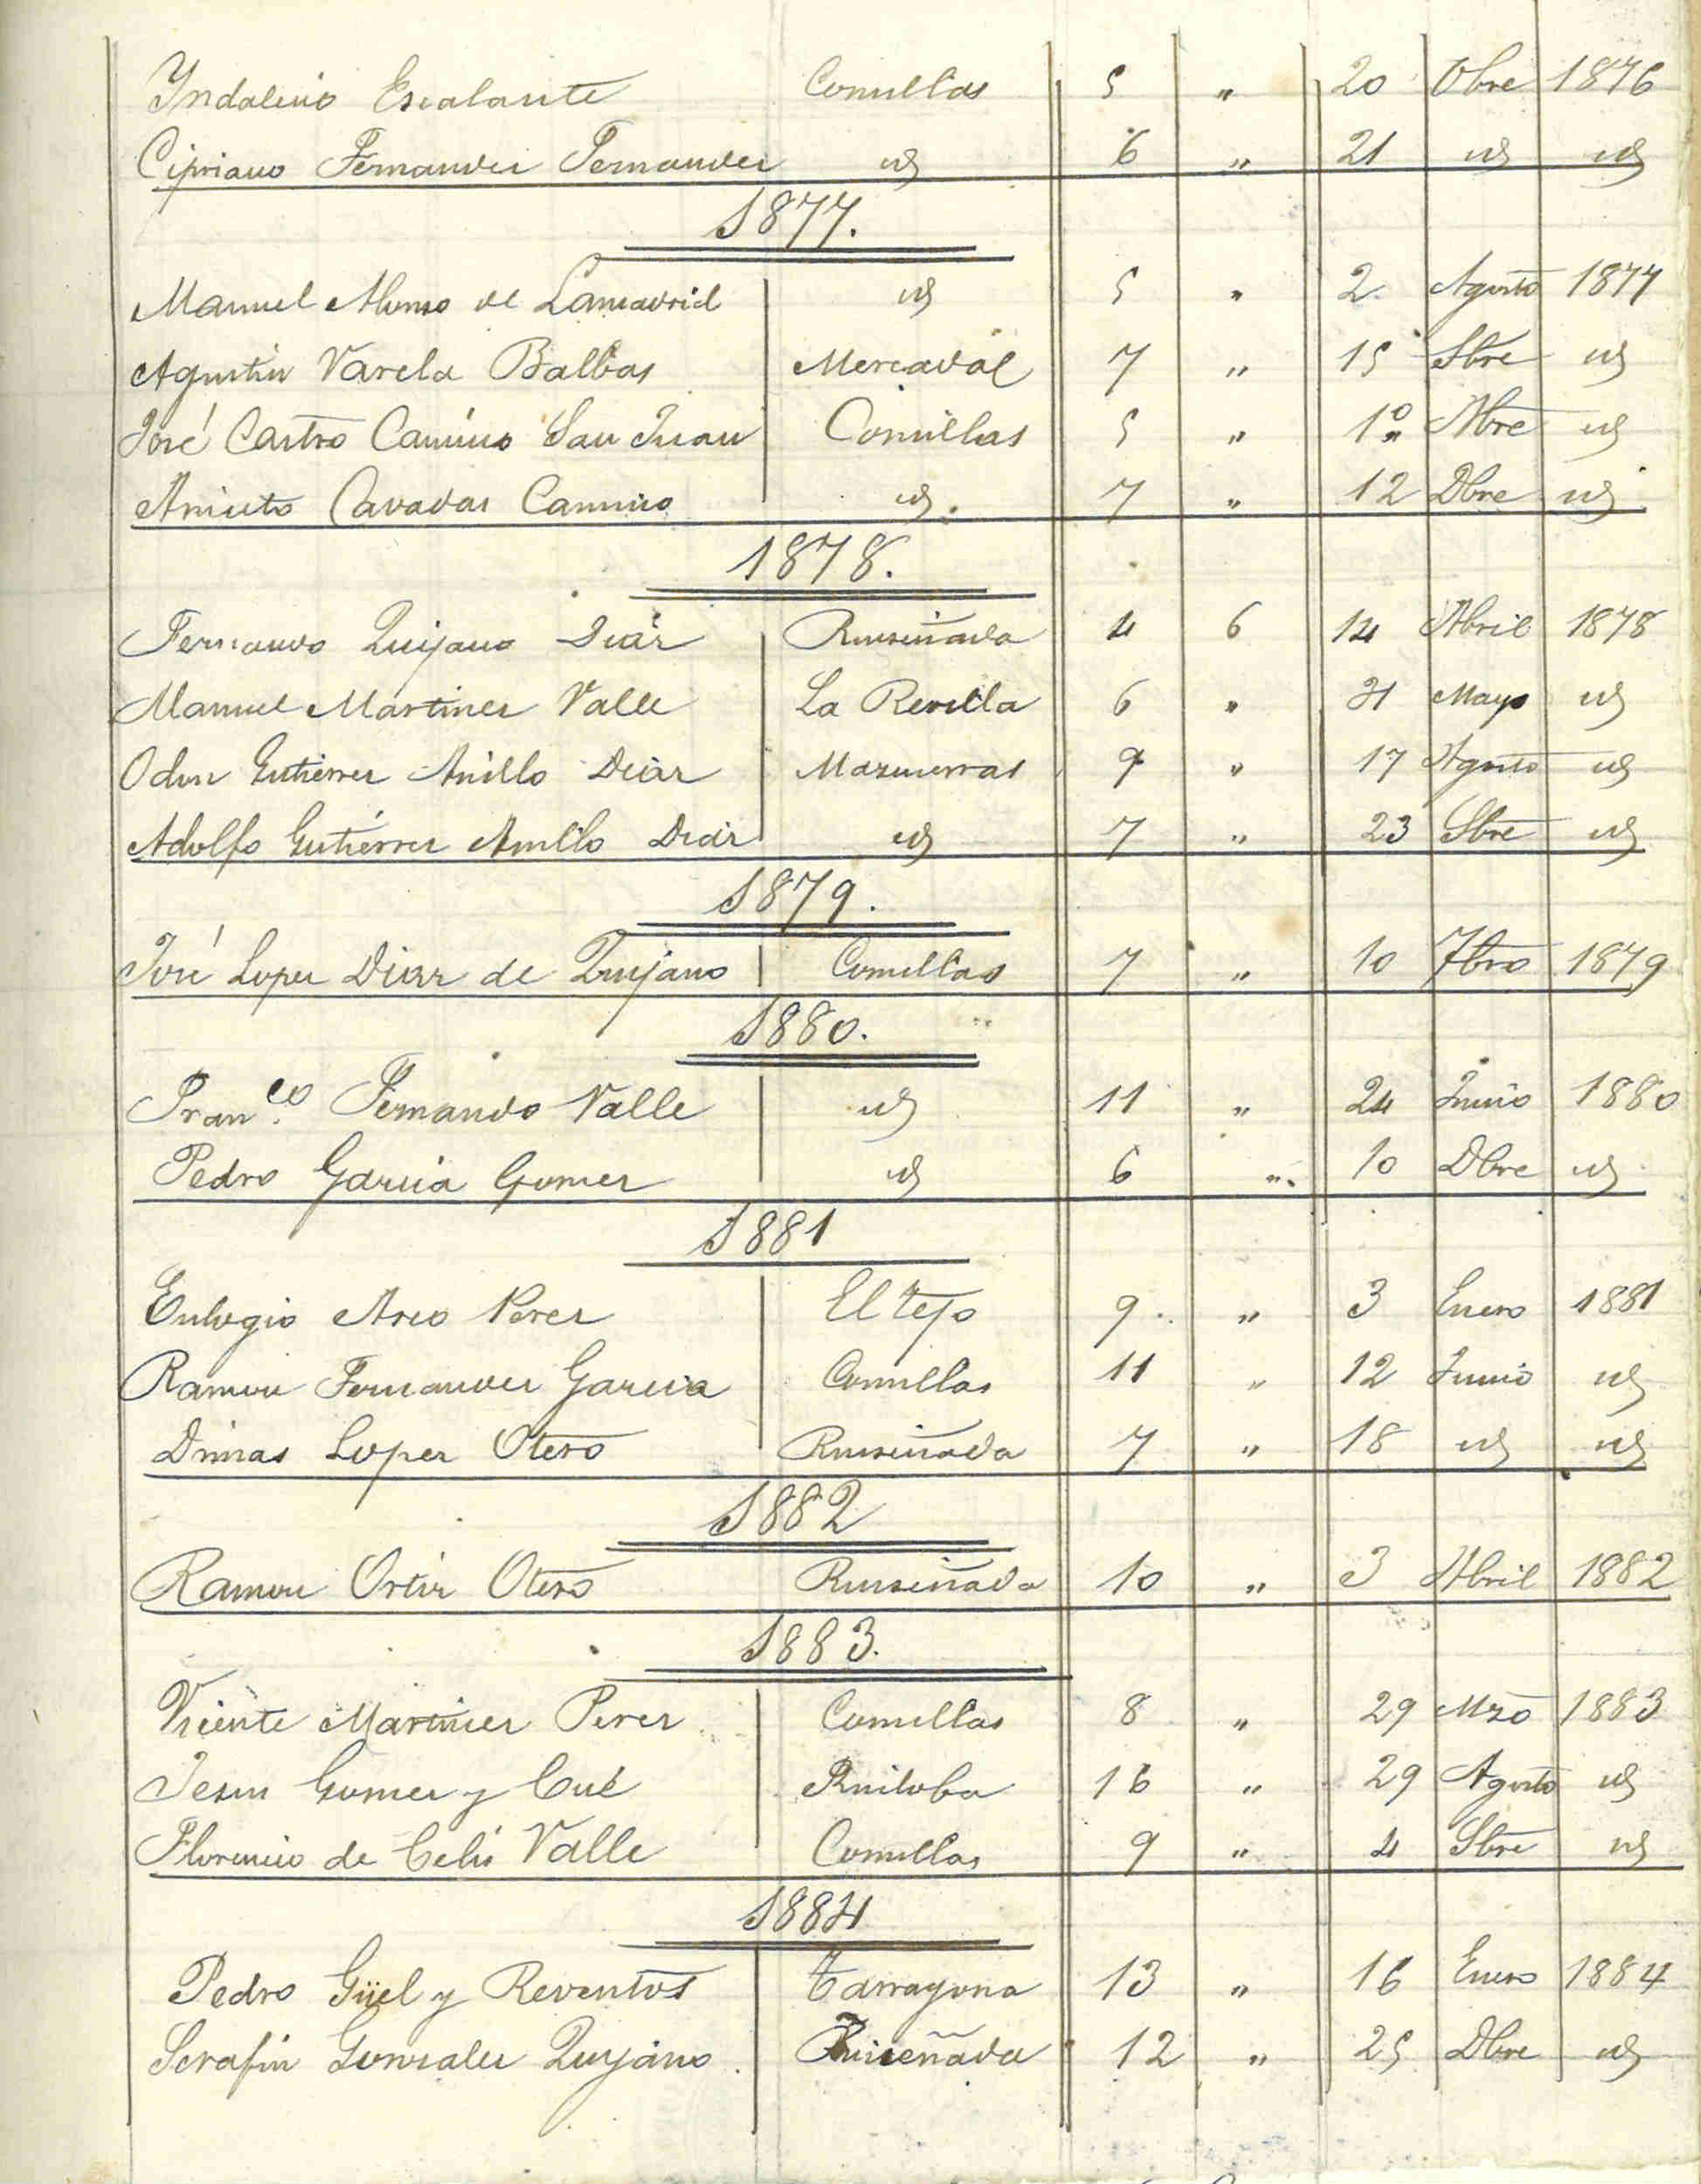 Yndalecio Escalante Comillas 5 " 20 Obre 1876
Cipriano Fernandez Fernandez id 6 " 21 id id
1877.
Manuel Alonso de Lamadrid id 5 " 2 Agosto 1877
Agustin Varela Balbas Mercadal 7 " 15 Sbre id
José Castro Camino San Juan Comillas 5 " 1º Nbre id
Aniceto Cavadas Camino id. 7 " 12 Dbre id
1878.
Fernando Quijano Diaz Ruiseñada 4 6 14 Abril 1878
Manuel Martinez Valle La Revilla 6 " 31 Mayo id
Odon Gutierrez Anillo Diaz Mazcuerras 9 " 17 Agosto id
Adolfo Gutierrez Anillo Diaz id 7 " 23 Sbre id
1879.
José Lopez Diaz de Quijano Comillas 7 " 10 7bro 1879
1880.
Franco. Fernando Valle id 11 " 24 Junio 1880
Pedro Garcia Gomez id 6 " 10 Dbre id
1881
Eulogio Arco Perez El Tejo 9 " 3 Enero 1881
Ramon Fernandez Garcia Comillas 11 " 12 Junio id
Dimas Lopez Otero Ruiseñada 7 " 18 id id
1882
Ramon Ortiz Otero Ruiseñada 10 " 3 Abril 1882
1883.
Vicente Martinez Perez Comillas 8 " 29 Mzo 1883
Jesus Gomez y Cué Ruiloba 16 " 29 Agosto id
Florencio de Celis Valle Comillas 9 " 4 Sbre id
1884
Pedro Güel y Reventos Tarragona 13 " 16 Enero 1884
Serafin Gonzalez Quijano Ruiseñada 12 " 25 Dbre id